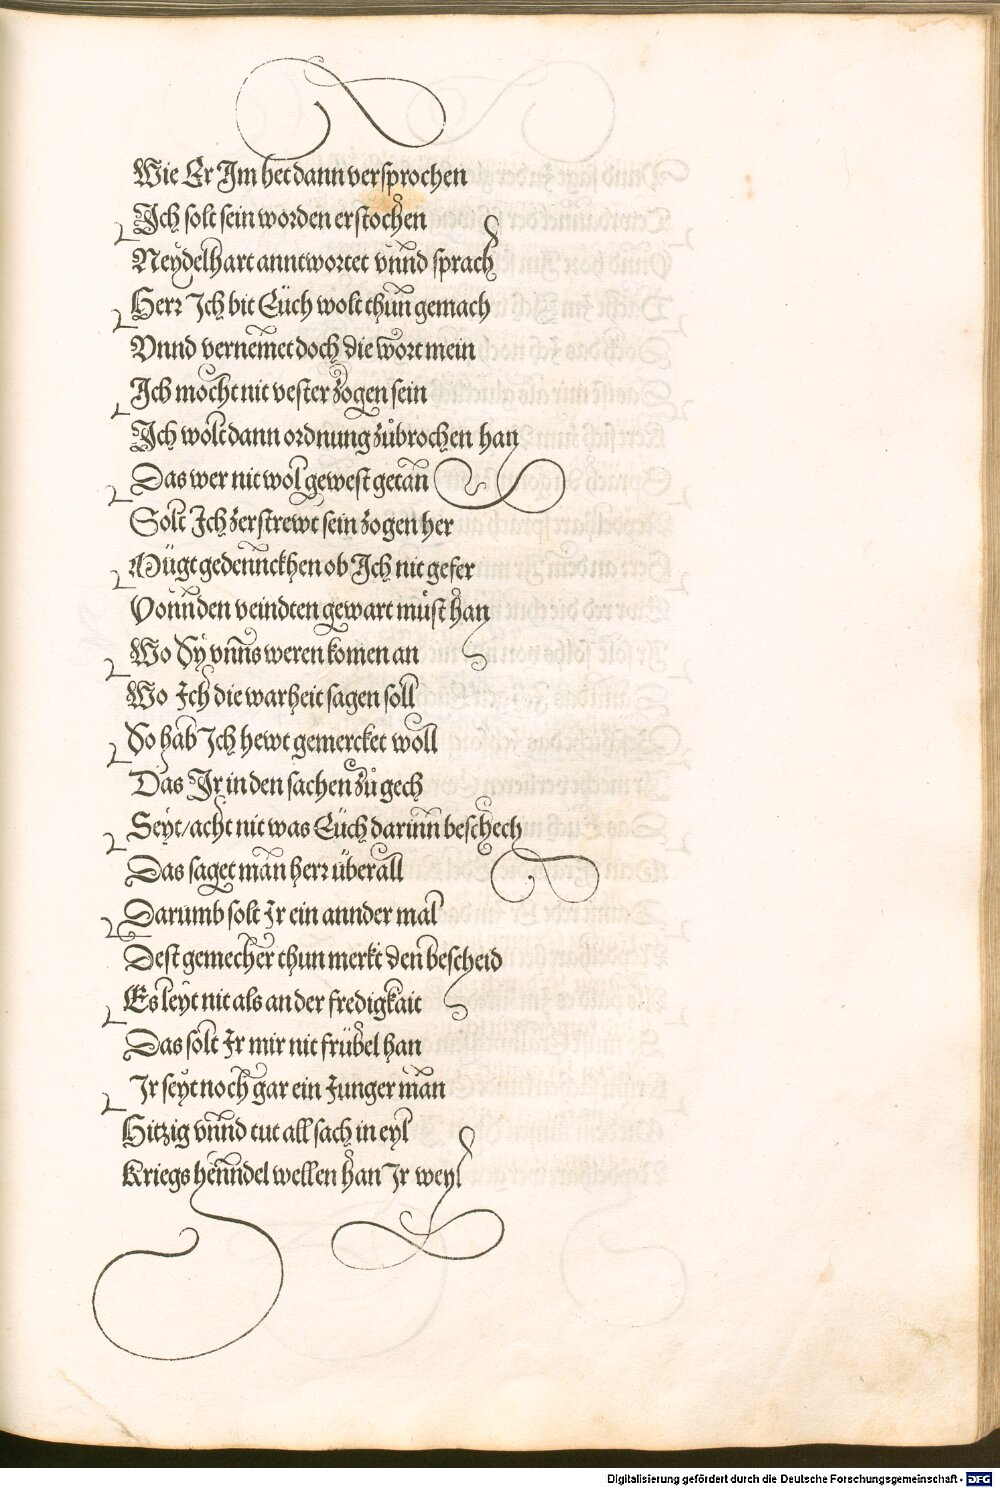 Wie Er Im het dann versprochen
Ich solt sein worden erstochen
Neydelhart anntwortet vnnd sprach
Herr Ich bit Eüch wolt thun gemach
Vnnd vernemet doch die wort mein
Ich mocht nit vester zogen sein
Ich wolt dann ordnung zůbrochen han
Das wer nit wol gewest getan
Solt Ich zerstrewt sein zogen her
Mügt gedennckhen ob Ich nit gefer
Vonn den veindten gewart müst han
Wo Sy vnns weren komen an
Wo Ich die warheit sagen soll
So hab Ich hewt gemercket woll
Das Ir in den sachen zů gech
Seyt/acht nit was Eüch darinn beschech
Das saget man herr überall
Darumb solt Ir ein annder mal
Dest gemecher thun merkt den bescheid
Es leyt nit als an der fredigkait
Das solt Ir mir nit frübel han
Ir seyt noch gar ein Junger man
Hitzig vnnd tut all sach in eyl
Kriegs henndel wellen han Ir weyl
Digitalisierung gefördert durch die Deutsche Forschungsgemeinschaft - DFG